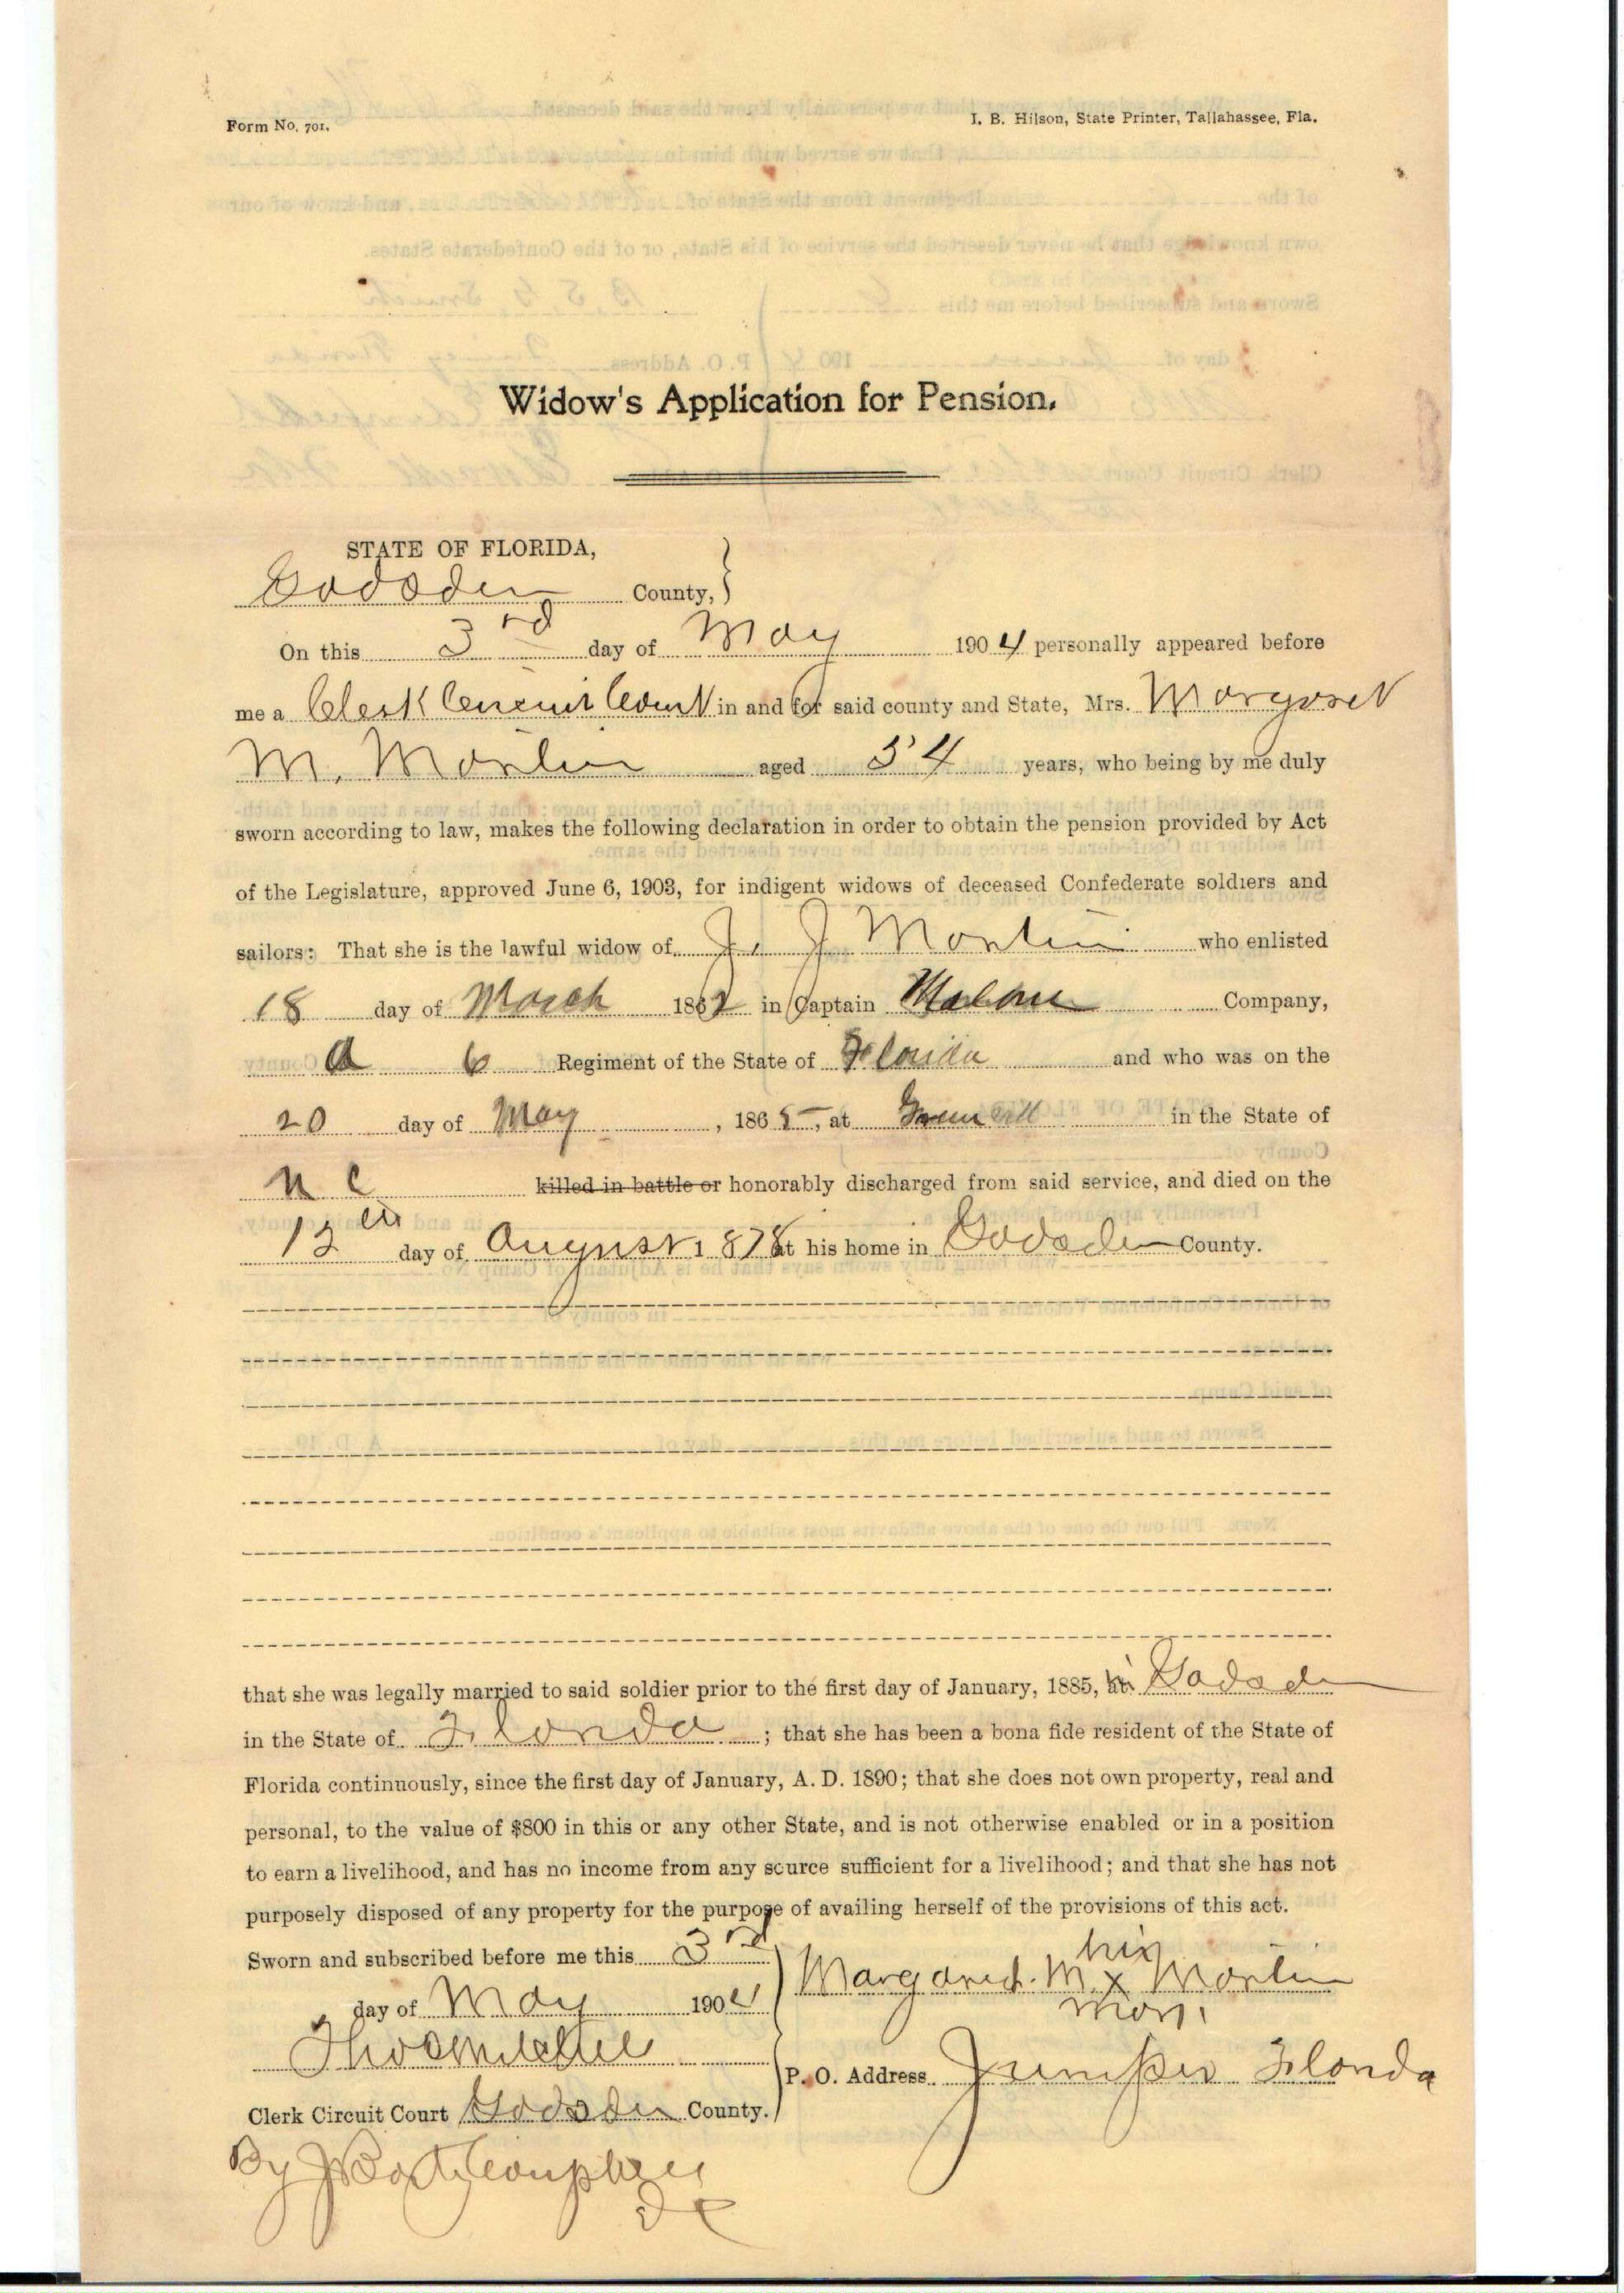 Form No. 701.
I. B. Hilson, State Printer, Tallahassee, Fla.
Widow's Application for Pension.
STATE OF FLORIDA,
Gadsden County,
On this 3rd day of May 1904 personally appeared before
me a Clerk Circuit Court in and for said county and State, Mrs. Margaret
M. Martin aged 54 years, who being by me duly
sworn according to law, makes the following declaration in order to obtain the pension provided by Act
of the Legislature, approved June 6, 1903, for indigent widows of deceased Confederate soldiers and
sailors: That she is the lawful widow of J. J Martin who enlisted
18 day of March 1862 in Captain Company,
a 6 Regiment of the State of Florida and who was on the
20 day of May, 1865, at in the State of
N C killed in battle or honorably discharged from said service, and died on the
day of August 1878 at his home in Gadsden County.
that she was legally married to said soldier prior to the first day of January, 1885, in Gadsden
in the State of Florida; that she has been a bona fide resident of the State of
Florida continuously, since the first day of January, A. D. 1890; that she does not own property, real and
personal, to the value of $800 in this or any other State, and is not otherwise enabled or in a position
to earn a livelihood, and has no income from any source sufficient for a livelihood; and that she has not
purposely disposed of any property for the purpose of availing herself of the provisions of this act.
Sworn and subscribed before me this 3rd
day of May 1904
her
Margaret. M. x Martin
mark
P. O. Address Juniper Florida
Clerk Circuit Court Gadsden County.
By